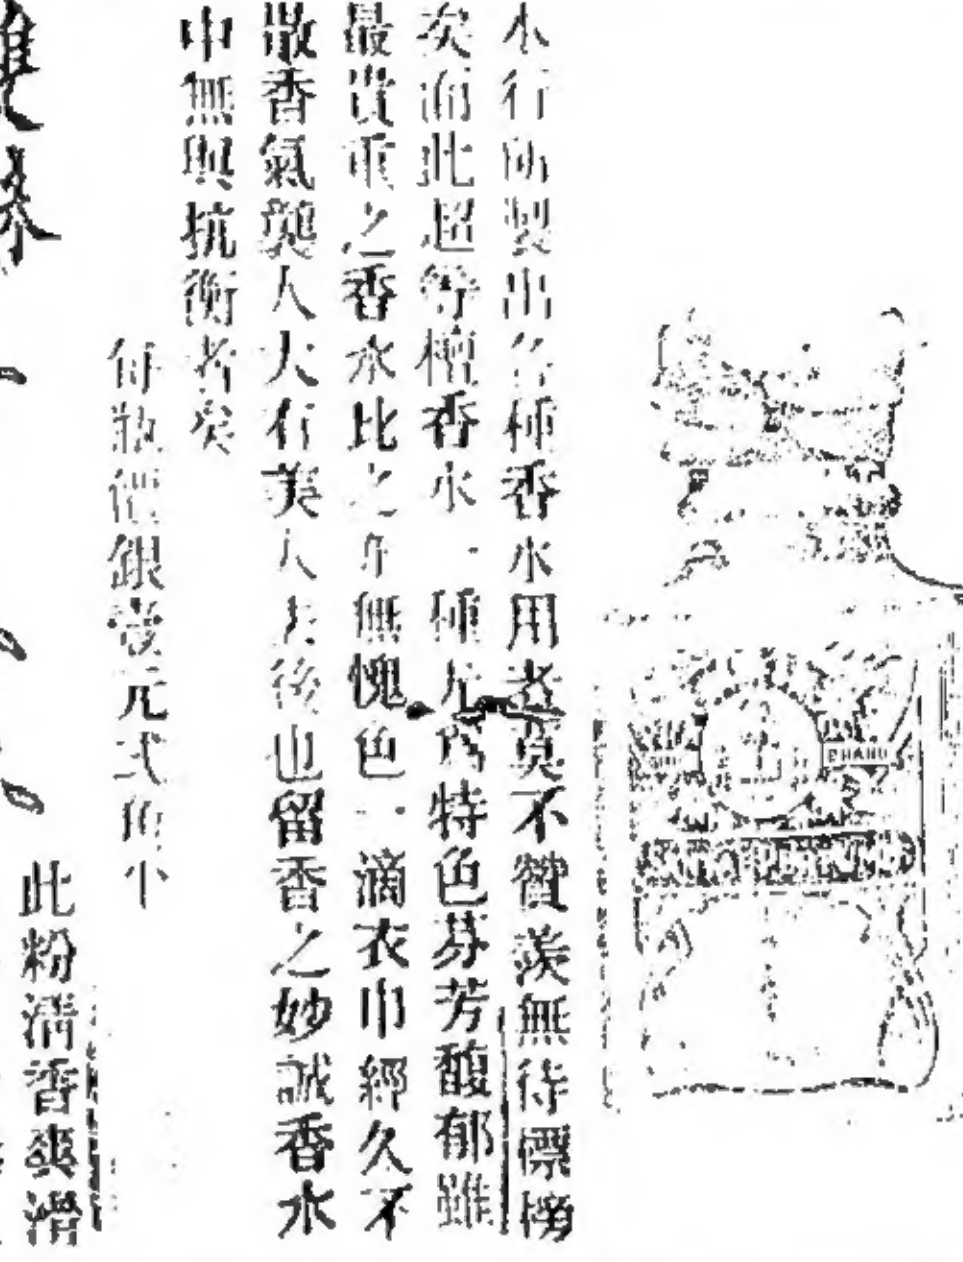 本行所製出各種香水用者莫不贊羨無待標榜
矣而此超等檀香水一種尤為特色芬芳馥郁雖
最貴重之香水比之亦無愧色一滴衣巾經久不
散香氣襲人大有美人去後也留香之妙誠香水
中無與抗衡者矣
每瓶價銀壹元弍角小
此粉清香爽滑